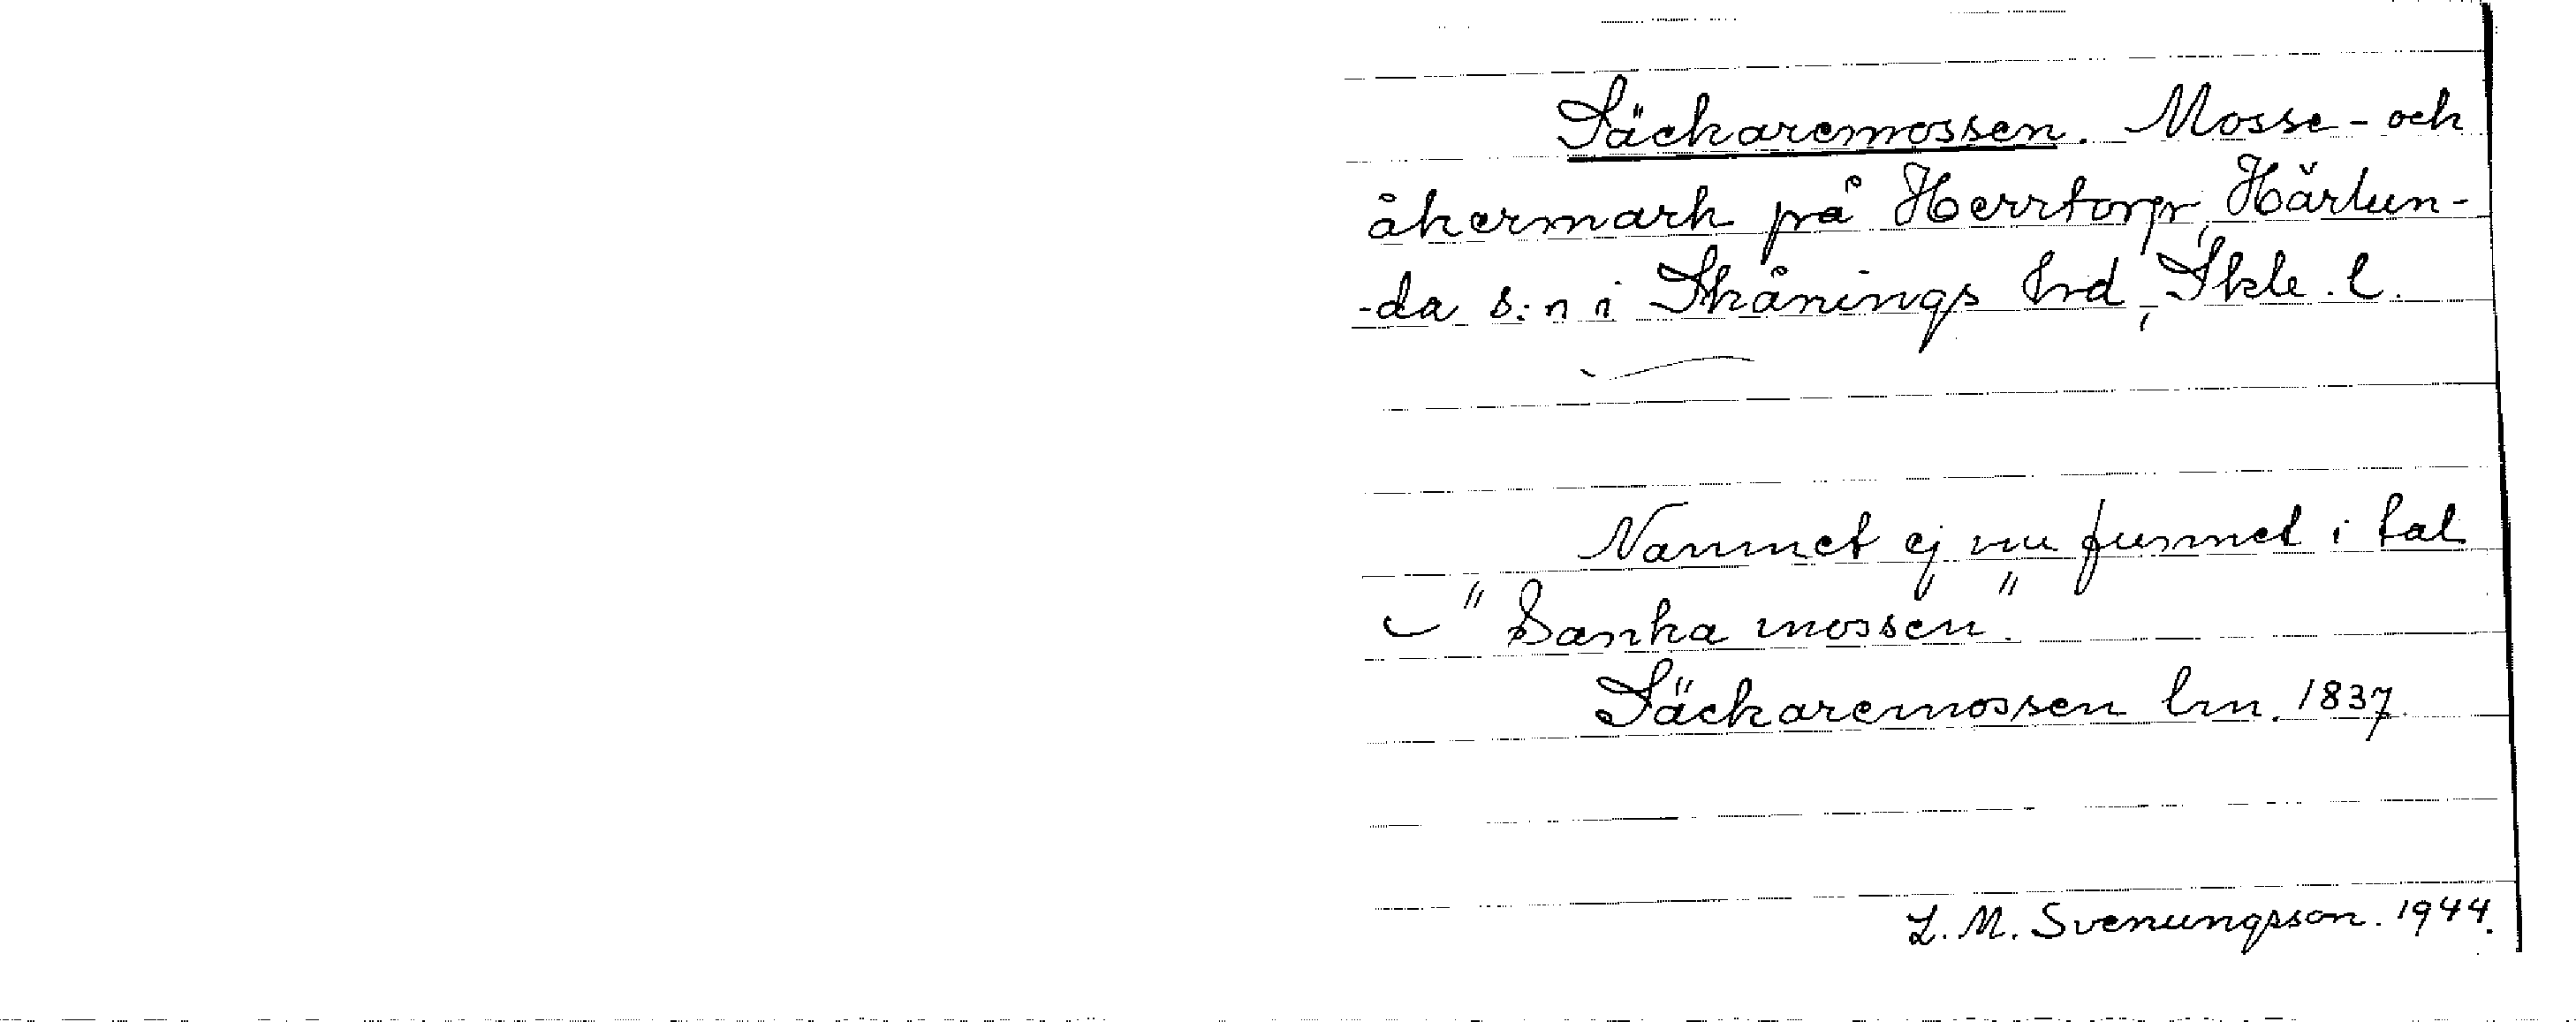 Säckaremossen. Mosse- och
åkermark på Herrtorp, Härlun-
-da s:n i Skånings hrd, Skbl. l.
Namnet ej nu funnet i tal
"Sanka mossen".
Säckaremossen lm. 1837.
L. M. Svenungsson. 1944.